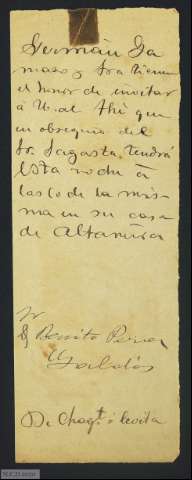 Germán Ga
mazo y Sra tienen
el honor de invitar
á V. al Thé que
en obsequio del
Sr. Sagasta, tendrá
esta noche á
las 10 de la mis
ma en su casa
de Altamira
Sr
D Benito Perez
Galdós
De Chaqt ó levita